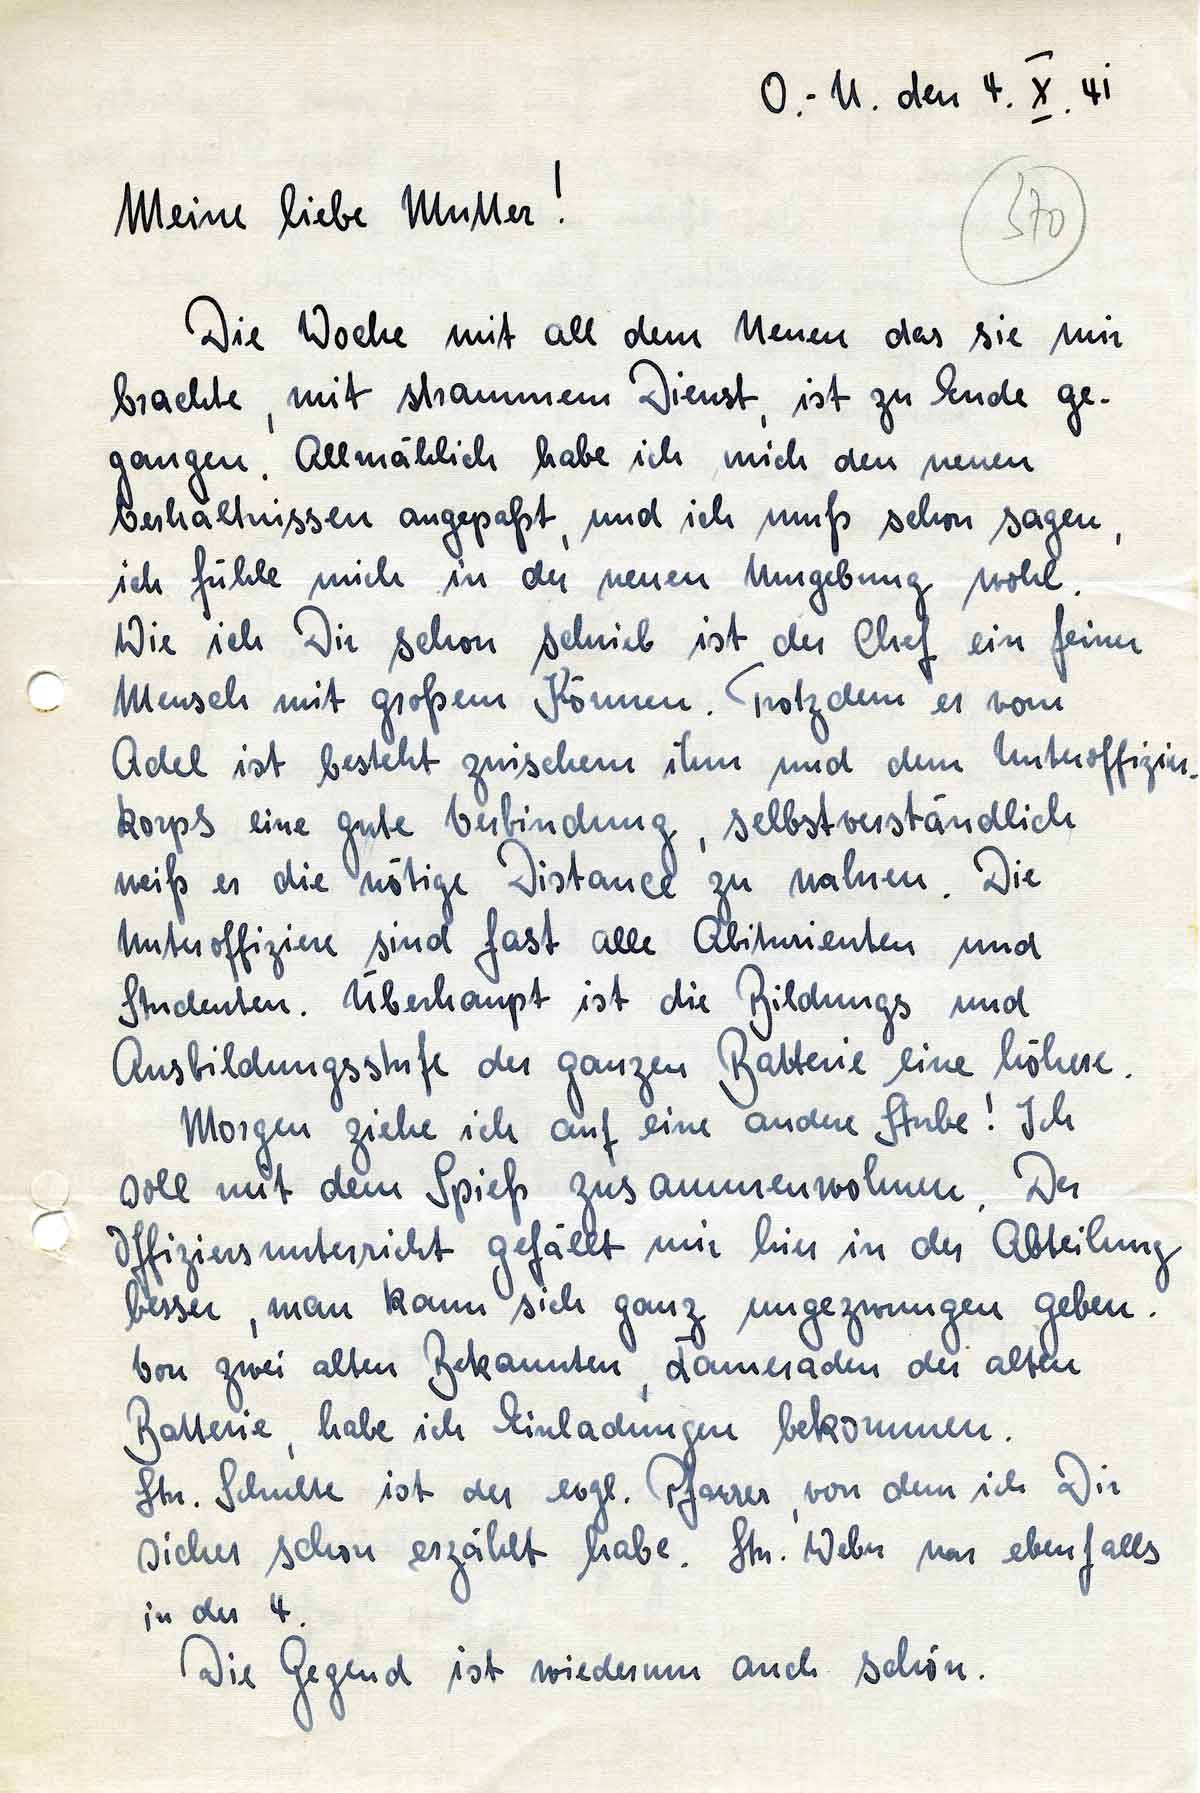 O.-U. den 4. X. 41
370
Meine liebe Mutter!
Die Woche mit all dem Neuen das sie mir
brachte, mit strammem Dienst, ist zu Ende ge-
gangen. Allmählich habe ich mich den neuen
Verhältnissen angepaßt, und ich muß schon sagen,
ich fühle mich in der neuen Umgebung wohl.
Wie ich Dir schon schrieb ist der Chef ein feiner
Mensch mit großem Können. Trotzdem er vom
Adel ist besteht zwischem ihm und dem Unteroffizier-
korps eine gute Verbindung, selbstverständlich
weiß er die nötige Distance zu wahren. Die
Unteroffiziere sind fast alle Abiturienten und
Studenten. Überhaupt ist die Bildungs und
Ausbildungsstufe der ganzen Batterie eine höhere.
Morgen ziehe ich auf eine andere Stube! Ich
soll mit dem Spieß zusammenwohnen. Der
Offiziersunterricht gefällt mir hier in der Abteilung
besser, man kann sich ganz ungezwungen geben.
Von zwei alten Bekannten, Kameraden der alten
Batterie, habe ich Einladungen bekommen.
Ltn. Schulte ist der evgl. Pfarrer, von dem ich Dir
sicher schon erzählt habe. Ltn. Weber war ebenfalls
in der 4.
Die Gegend ist wiederum auch schön.